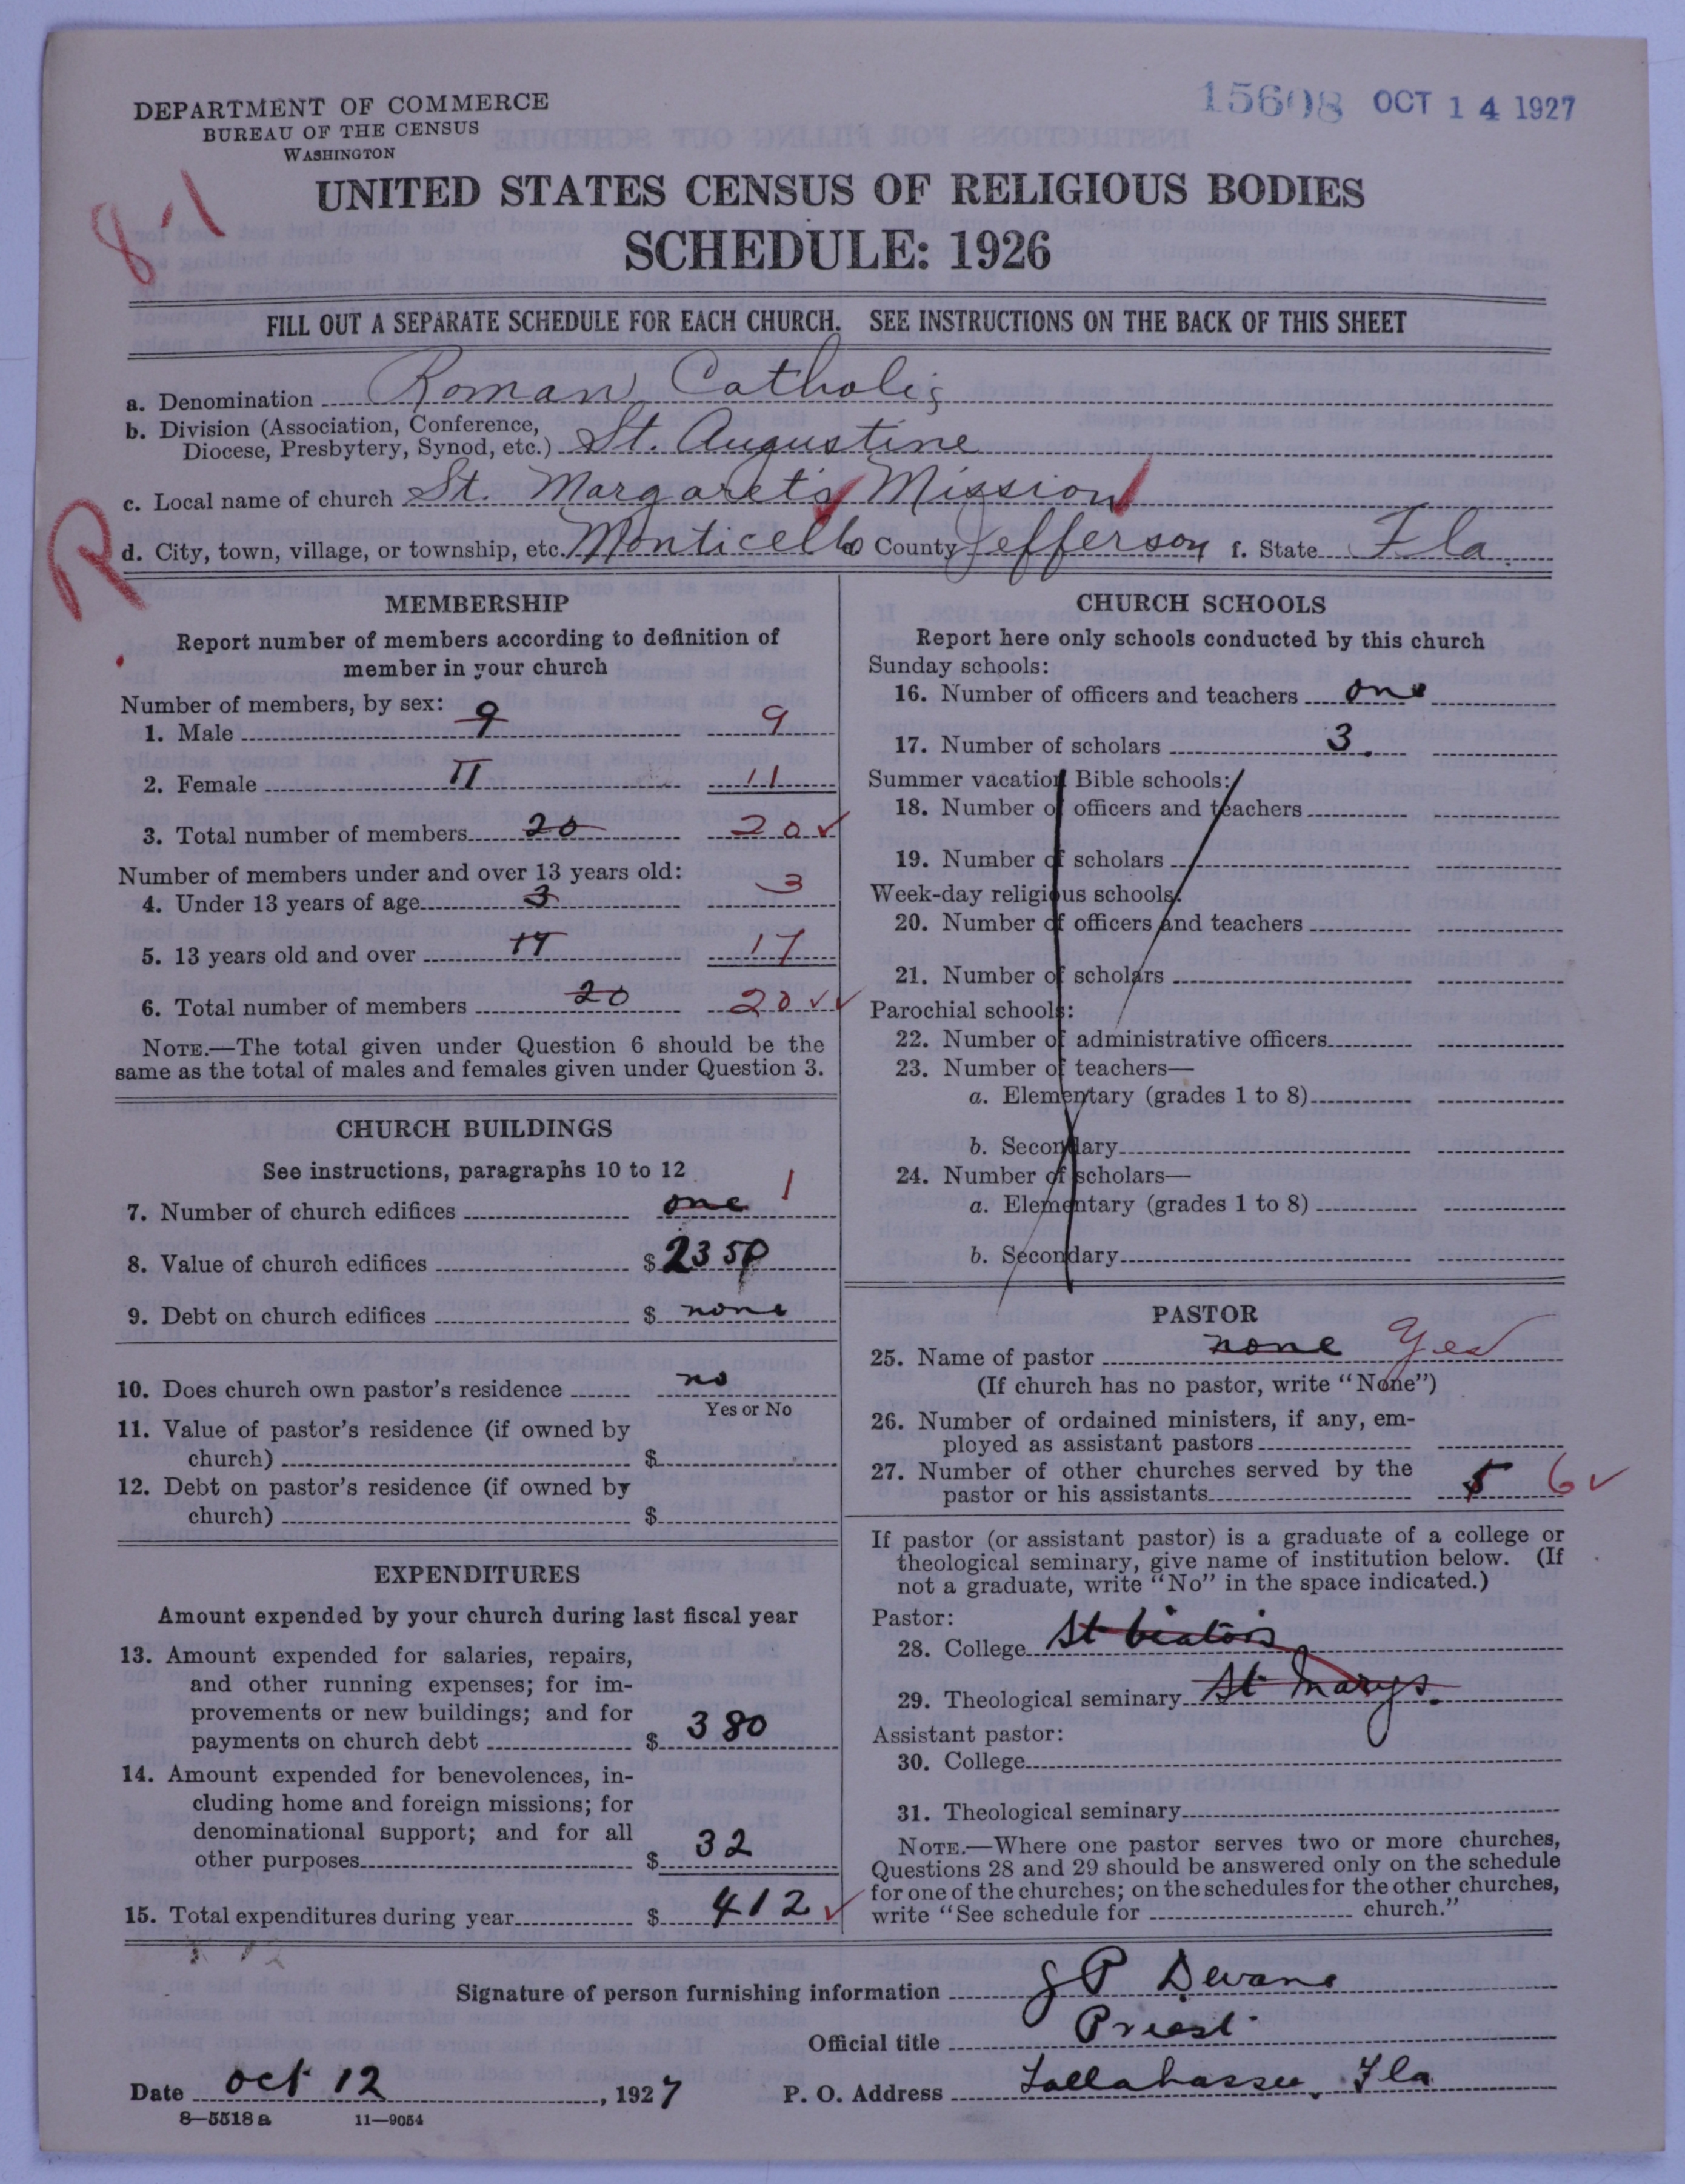 15608 OCT 14 1927
DEPARTMENT OF COMMERCE
BUREAU OF THE CENSUS
WASHINGTON
8-1
UNITED STATES CENSUS OF RELIGIOUS BODIES
SCHEDULE: 1926
FILL OUT A SEPARATE SCHEDULE FOR EACH CHURCH. SEE INSTRUCTIONS ON THE BACK OF THIS SHEET
a. Denomination Roman Catholic
b. Division (Association, Conference,
Diocese, Presbytery, Synod, etc.) St. Augustine
R
c. Local name of church St. Margaret's Mission
d. City, town, village, or township, etc. Monticello e. County Jefferson f. State Fla.
MEMBERSHIP
Report number of members according to definition of
member in your church
Number of members, by sex:
1. Male 9 9
2. Female 11 11
3. Total number of members 20 20 ✓
Number of members under and over 13 years old:
4. Under 13 years of age 3 3
5. 13 years old and over 17 17
6. Total number of members 20 20 ✓✓
NOTE.—The total given under Question 6 should be the
same as the total of males and females given under Question 3.
CHURCH BUILDINGS
See instructions, paragraphs 10 to 12
7. Number of church edifices one 1
8. Value of church edifices $ 2350
9. Debt on church edifices $ none
10. Does church own pastor's residence no
Yes or No
11. Value of pastor's residence (if owned by
church) $
12. Debt on pastor's residence (if owned by
church) $
EXPENDITURES
Amount expended by your church during last fiscal year
13. Amount expended for salaries, repairs,
and other running expenses; for im-
provements or new buildings; and for
payments on church debt $ 380
14. Amount expended for benevolences, in-
cluding home and foreign missions; for
denominational support; and for all
other purposes $ 32
15. Total expenditures during year $ 412 ✓
CHURCH SCHOOLS
Report here only schools conducted by this church
Sunday schools:
16. Number of officers and teachers one
17. Number of scholars 3.
Summer vacation Bible schools:
18. Number of officers and teachers
19. Number of scholars
Week-day religious schools:
20. Number of officers and teachers
21. Number of scholars
Parochial schools:
22. Number of administrative officers
23. Number of teachers—
a. Elementary (grades 1 to 8)
b. Secondary
24. Number of scholars—
a. Elementary (grades 1 to 8)
b. Secondary
PASTOR
25. Name of pastor none Yes
(If church has no pastor, write "None")
26. Number of ordained ministers, if any, em-
ployed as assistant pastors
27. Number of other churches served by the
pastor or his assistants 5 6 ✓
If pastor (or assistant pastor) is a graduate of a college or
theological seminary, give name of institution below. (If
not a graduate, write "No" in the space indicated.)
Pastor:
28. College St Viators
29. Theological seminary St Marys.
Assistant pastor:
30. College
31. Theological seminary
NOTE.—Where one pastor serves two or more churches,
Questions 28 and 29 should be answered only on the schedule
for one of the churches; on the schedules for the other churches,
write "See schedule for church."
Signature of person furnishing information J P Devane
Official title Priest
Date Oct 12, 1927 P. O. Address Tallahassee, Fla
8—5518 a 11—9054